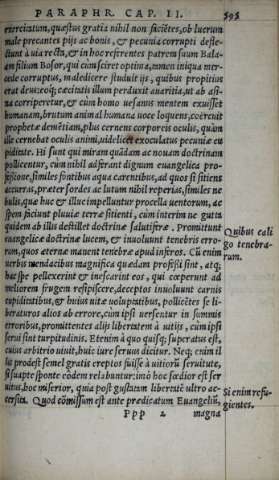 PARAPHR. CAP. II. 595
exerciatum, quæstus gratia nihil non faciẽtes, ob lucrum
male precantes pijs ac bonis, & pecunia corrupti defle-
ctunt à via recta, & in hoc referentes patrem suum Bala-
am filium Bosor, qui cùm sciret optima, tamen iniqua mer-
cede corruptus, maledicere studuit ijs, quibus propitius
erat deus: eoq́; cæcitatis illum perduxit auaritia, ut ab asi-
na corriperetur, & cùm homo uesanus mentem exuisset
humanam, brutum animal humana uoce loquens, coërcuit
prophetæ demẽtiam, plus cernens corporeis oculis, quàm
ille cernebat oculis animi, uidelicet excæcatus pecuniæ cu
piditate. Hi sunt qui miram quãdam ac nouam doctrinam
pollicentur, cùm nihil adferant dignum euangelica pro-
fessione, similes fontibus aqua carentibus, ad quos si sitiens
accurras, præter sordes ac lutum nihil reperias, similes ne
bulis, quæ huc & illuc impelluntur procella uentorum, ac
spem faciunt pluuiæ terræ sitienti, cùm interim ne gutta
quidem ab illis destillet doctrinæ salutiferæ. Promittunt
euangelicæ doctrinæ lucem, & inuoluunt tenebris erro-
rum, quos æternæ manent tenebræ apud inferos. Cũ enim
uerbis mendacibus magnifica quædam professi sint, atq́;
hac spe pellexerint & inescarint eos, qui cœperunt ad
meliorem frugem resipiscere, deceptos inuoluunt carnis
cupiditatibus, & huius uitæ uoluptatibus, pollicẽtes se li-
beraturos alios ab errore, cùm ipsi uersentur in summis
erroribus, promittentes alijs libertatem à uitijs, cùm ipsi
serui sint turpitudinis. Etenim à quo quisq́; superatus est,
cuius arbitrio uiuit, huic iure seruus dicitur. Neq; enim il
lis prodest semel gratis ereptos fuisse à uitiorũ seruitute,
si suapte sponte eòdem relabuntur: imò hoc fœdior est ser
uitus, hoc miserior, quia post gustatam libertatẽ ultro ac-
cersita. Quòd cõmissum est ante prædicatum Euangeliũ,
Ppp 2 magna
Quibus cali
go tenebra-
rum.
Si enim refu-
gientes.